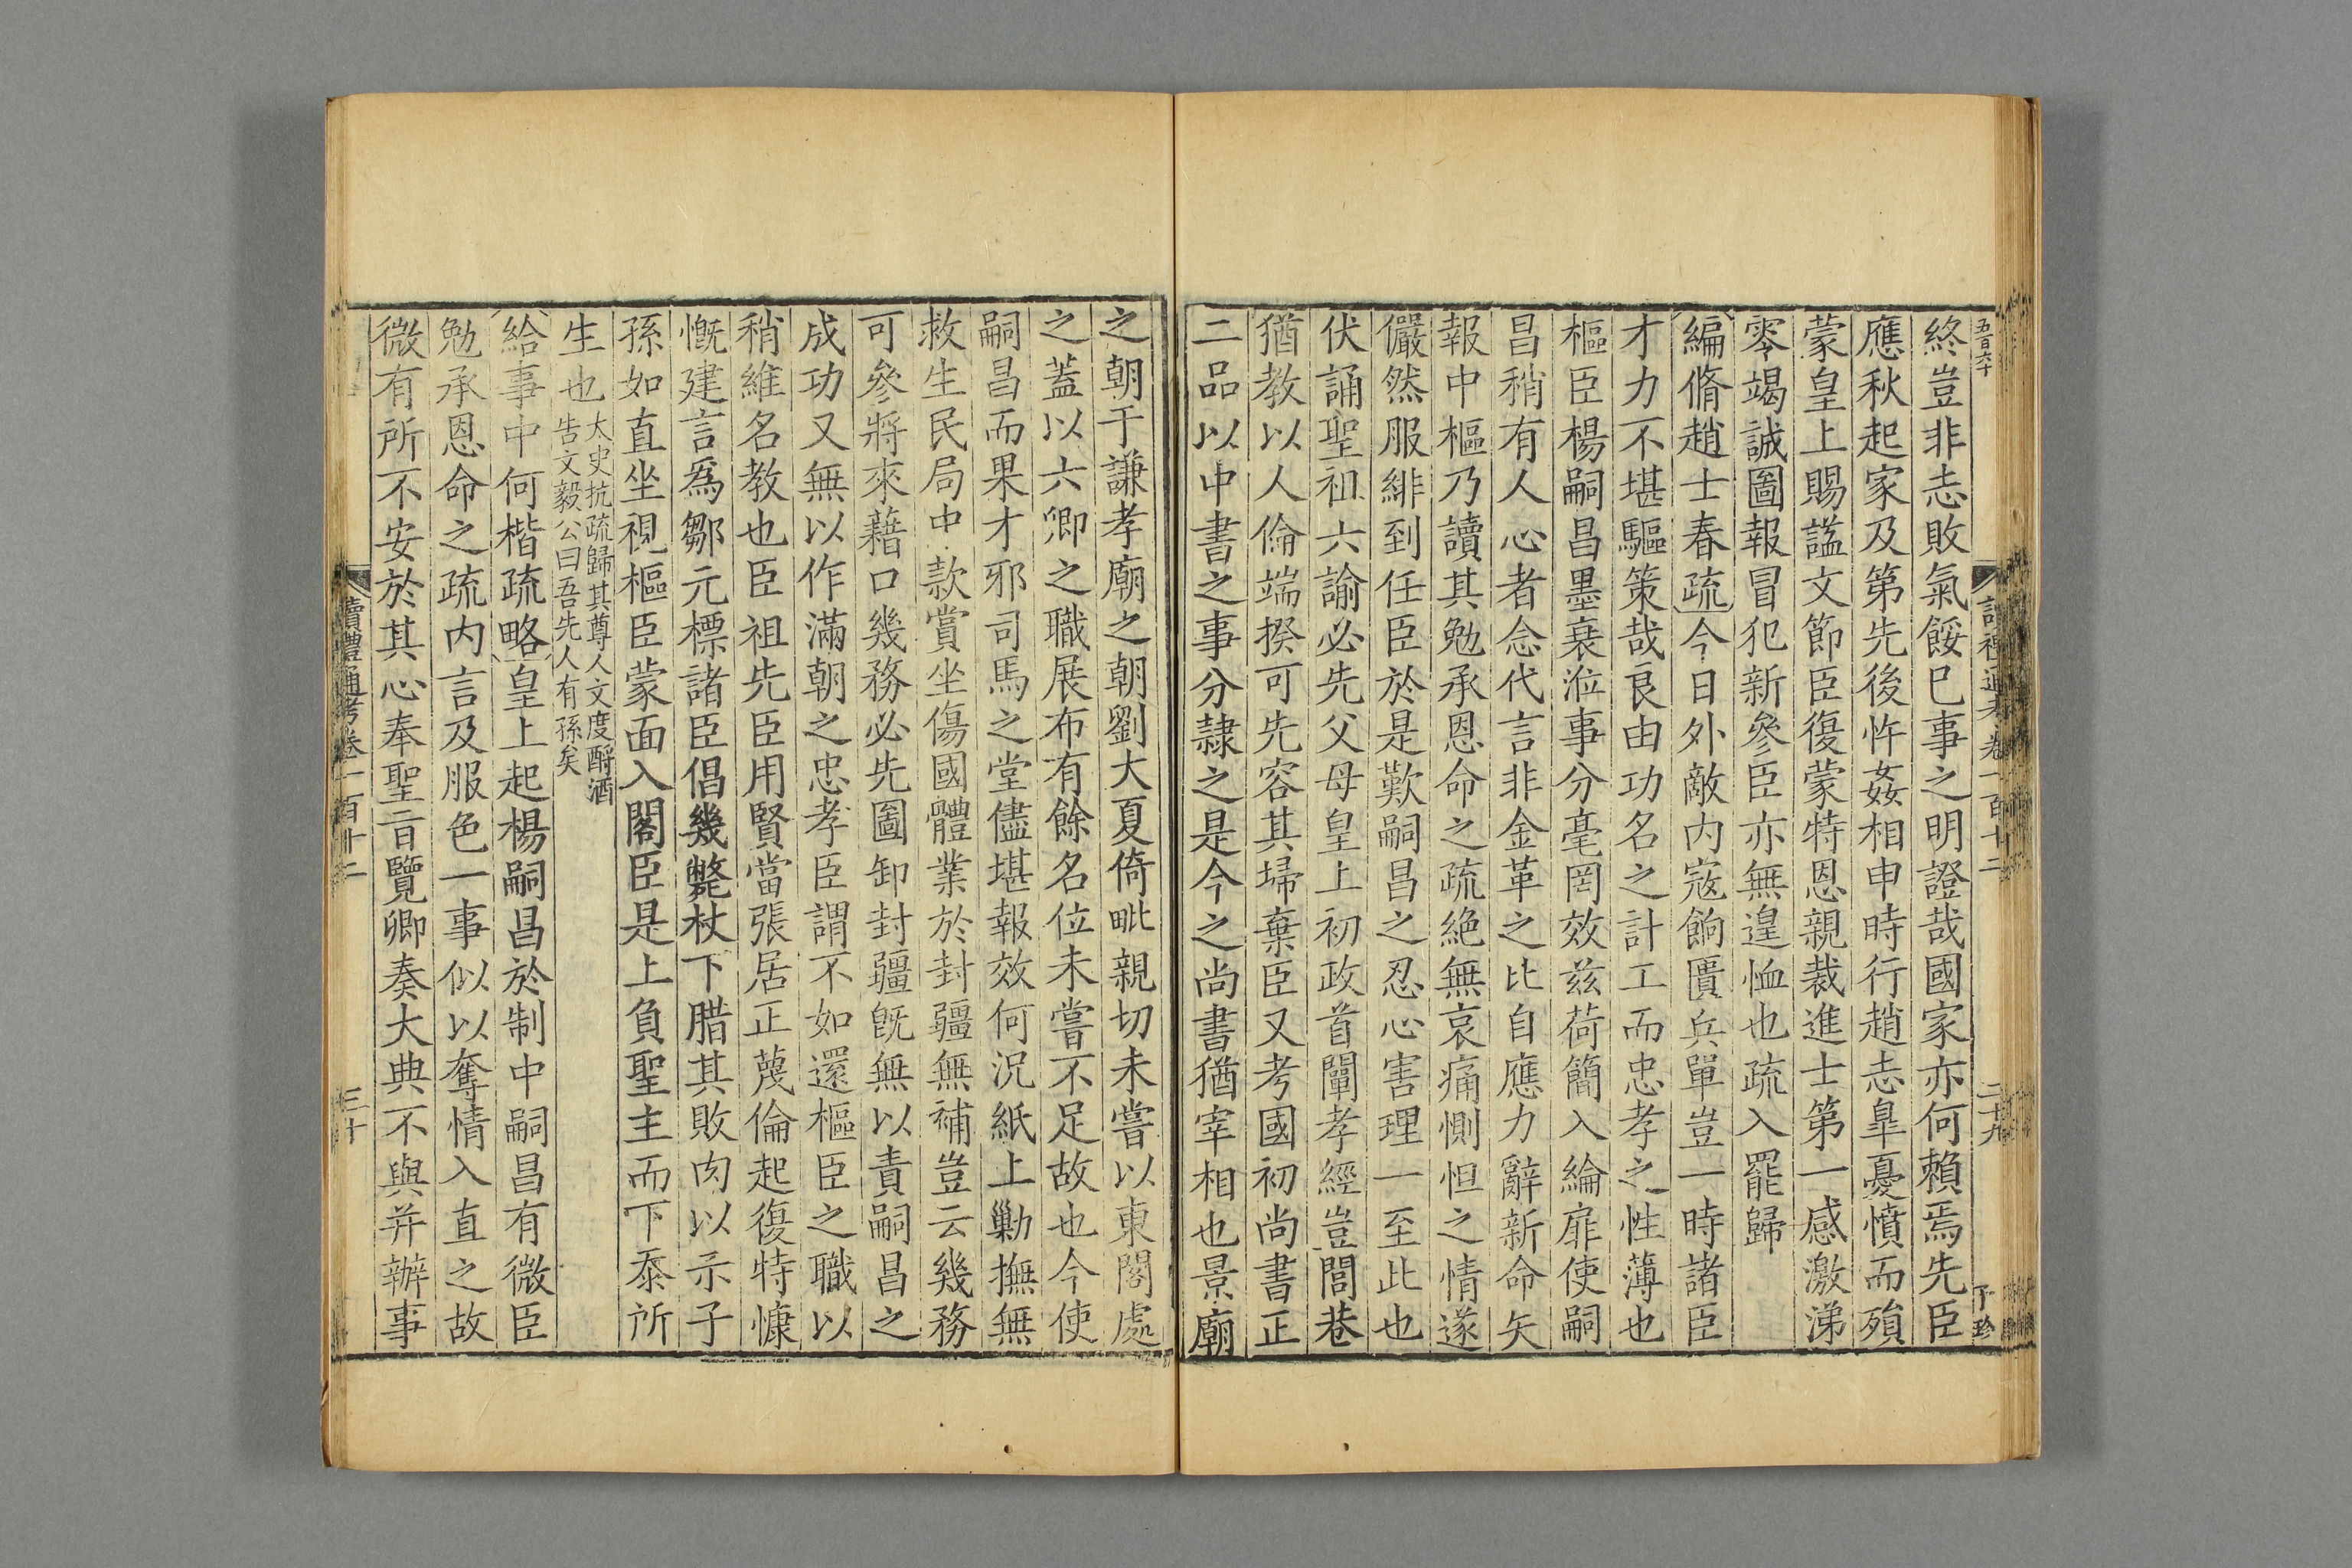 五百六十
讀禮通考卷一百十二
二十九
子珍
終豈非志敗氣餒已事之明證哉國家亦何賴焉先臣
應秋起家及第先後忤姦相申時行趙志臯憂憤而殞
蒙皇上賜諡文節臣復蒙特恩親裁進士第一感激涕
零竭誠圖報冒犯新參臣亦無遑恤也疏入罷歸
編脩趙士春疏今日外敵内寇餉匱兵單豈一時諸臣
才力不堪驅策哉良由功名之計工而忠孝之性薄也
樞臣楊嗣昌墨衰涖事分毫罔效兹荷簡入綸扉使嗣
昌稍有人心者念代言非金革之比自應力辭新命矢
報中樞乃讀其勉承恩命之疏絶無哀痛惻怛之情遂
儼然服緋到任臣於是歎嗣昌之忍心害理一至此也
伏誦聖祖六諭必先父母皇上初政首闡孝經豈閭巷
猶教以人倫端揆可先容其埽棄臣又考國初尚書正
二品以中書之事分隷之是今之尚書猶宰相也景廟
之朝于謙孝廟之朝劉大夏倚毗親切未嘗以東閣處
之蓋以六卿之職展布有餘名位未嘗不足故也今使
嗣昌而果才邪司馬之堂儘堪報效何況紙上勦撫無
救生民局中款賞坐傷國體業於封疆無補豈云幾務
可參將來藉口幾務必先圖卸封疆旣無以責嗣昌之
成功又無以作滿朝之忠孝臣謂不如還樞臣之職以
稍維名教也臣祖先臣用賢當張居正蔑倫起復特慷
慨建言爲鄒元標諸臣倡幾斃杖下腊其敗肉以示子
孫如直坐視樞臣蒙面入閣臣是上負聖主而下忝所
生也太史抗疏歸其尊人文度酹酒
告文毅公曰吾先人有孫矣
給事中何楷疏略皇上起楊嗣昌於制中嗣昌有微臣
勉承恩命之疏内言及服色一事似以奪情入直之故
微有所不安於其心奉聖旨覽卿奏大典不與并辦事
讀禮通考卷一百十二
三十